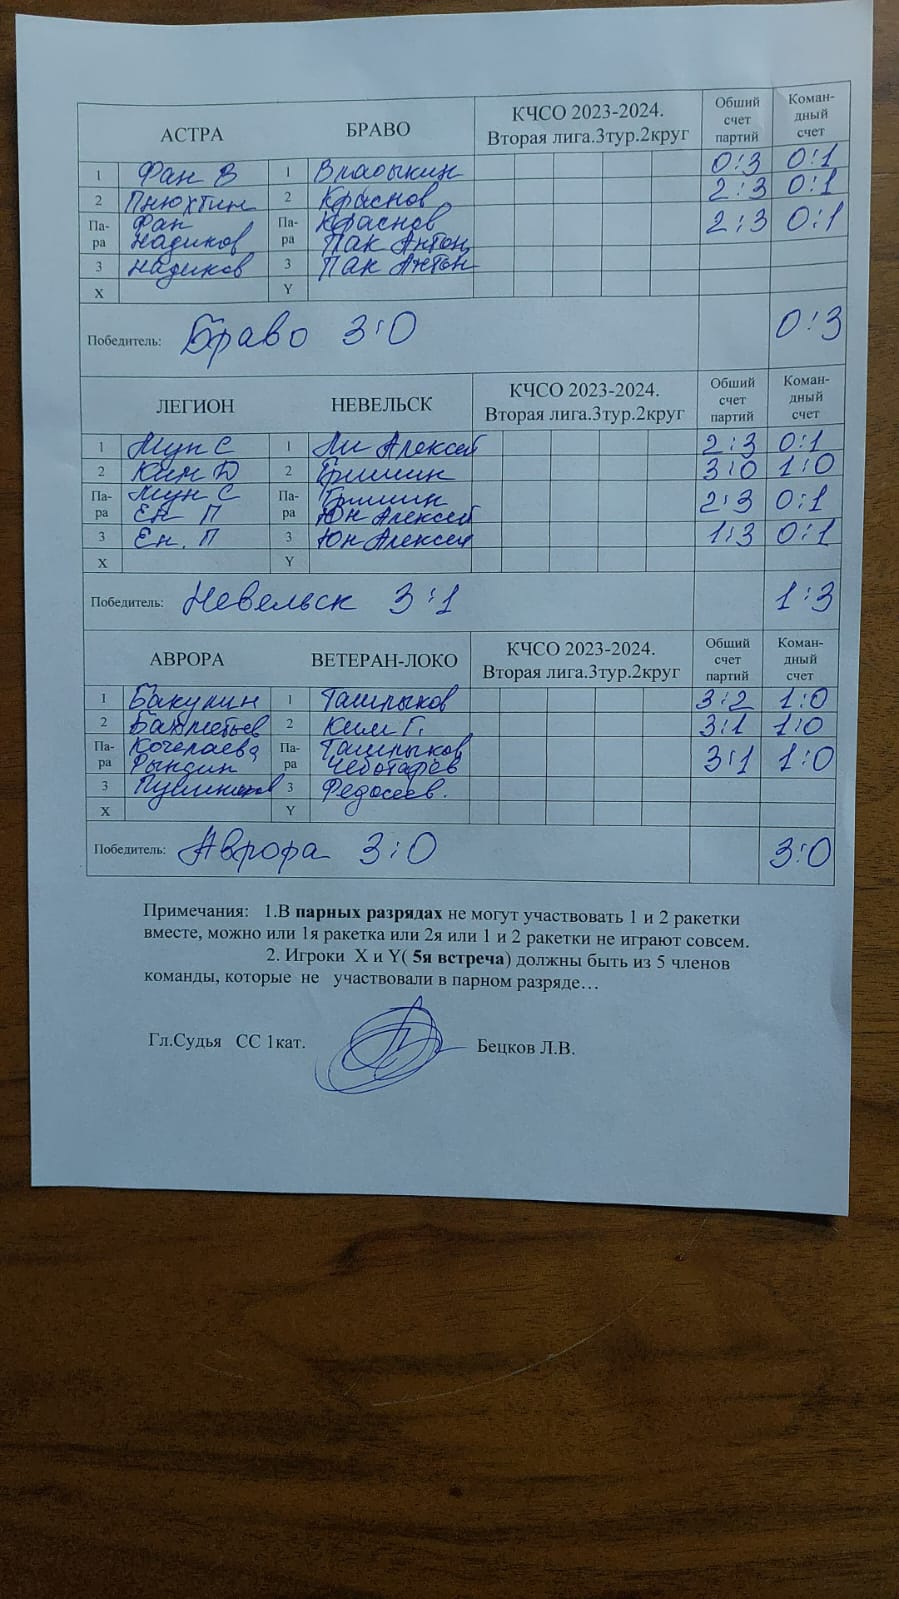 АСТРА БРАВО КЧСО 2023-2024. Вторая лига.3тур.2круг Обший счет партий Коман-дный счет
1 Фан В 1 Владыкин 0:3 0:1
2 Пнюхтин 2 Краснов 2:3 0:1
Па-ра Фан Па-ра Краснов 2:3 0:1
Надиков Пак Антон
3 Надиков 3 Пак Антон
X Y
Победитель: Браво 3:0 0:3
ЛЕГИОН НЕВЕЛЬСК КЧСО 2023-2024. Вторая лига.3тур.2круг Обший счет партий Коман-дный счет
1 Мун С 1 Ли Алексей 2:3 0:1
2 Ким Д 2 Гришин 3:0 1:0
Па-ра Мун С Па-ра Гришин 2:3 0:1
Ен П Юн Алексей
3 Ен. П 3 Юн Алексей 1:3 0:1
X Y
Победитель: Невельск 3:1 1:3
АВРОРА ВЕТЕРАН-ЛОКО КЧСО 2023-2024. Вторая лига.3тур.2круг Обший счет партий Коман-дный счет
1 Бакулин 1 Ташлыков 3:2 1:0
2 Бахметьев 2 Ким Г. 3:1 1:0
Па-ра Кочелаева Па-ра Ташлыков 3:1 1:0
Рындин Чеботарёв
3 3 Федосеев.
X Y
Победитель: Аврора 3:0 3:0
Примечания: 1.В парных разрядах не могут участвовать 1 и 2 ракетки
вместе, можно или 1я ракетка или 2я или 1 и 2 ракетки не играют совсем.
2. Игроки X и Y( 5я встреча) должны быть из 5 членов
команды, которые не участвовали в парном разряде…
Гл.Судья СС 1кат. Бецков Л.В.